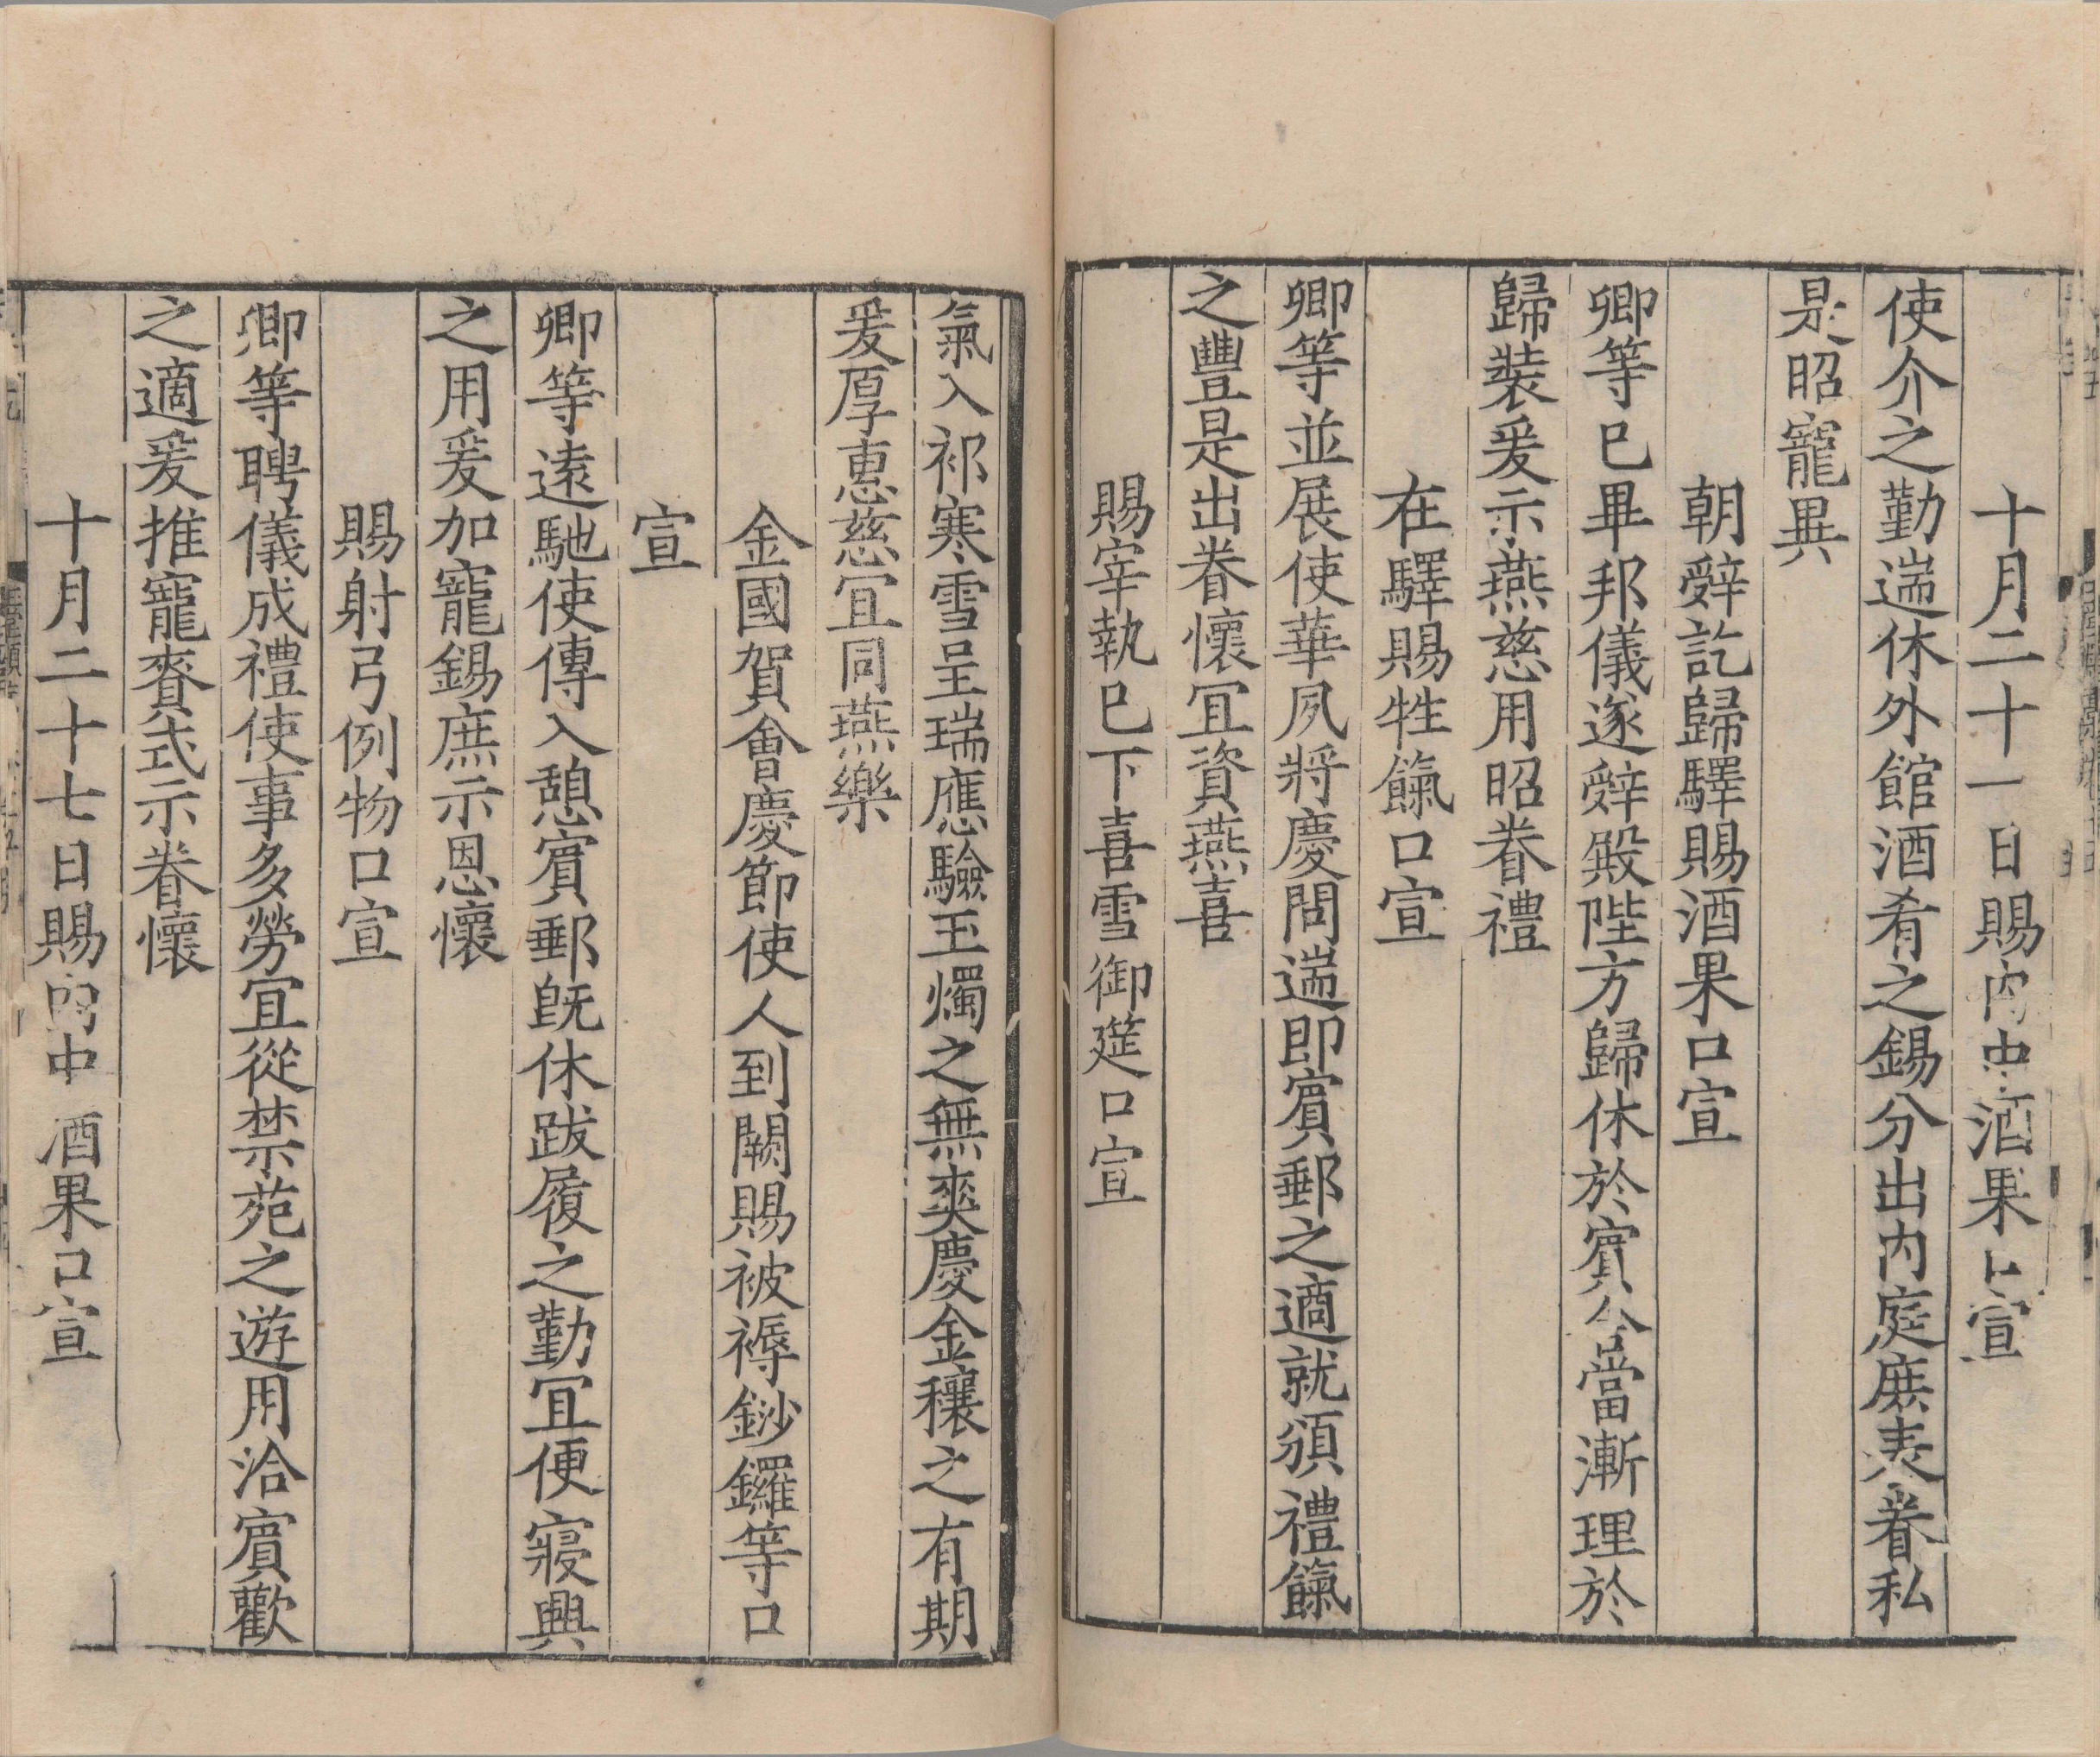 十月二十一日賜内中酒果口宣
使介之勤遄休外館酒肴之錫分出内庭庶表眷私
是昭寵異
朝辭訖歸驛賜酒果口宣
卿等已畢邦儀遂辭殿陛方歸休於賓舍當漸理於
歸裝爰示燕慈用昭眷禮
在驛賜牲餼口宣
卿等並展使華夙將慶問遄即賓郵之適就頒禮餼
之豐是出眷懷宜資燕喜
賜宰執已下喜雪御筵口宣
氣入祁寒雪呈瑞應驗玉燭之無爽慶金穰之有期
爰厚恵慈宜同燕樂
金國賀會慶節使人到闕賜被褥鈔鑼等口
宣
卿等遠馳使傳入憩賓郵旣休跋履之勤宜便寢興
之用爰加寵錫庶示恩懷
賜射弓例物口宣
卿等聘儀成禮使事多勞宜從禁苑之遊用洽賓歡
之適爰推寵賚式示眷懷
十月二十七日賜内中酒果口宣